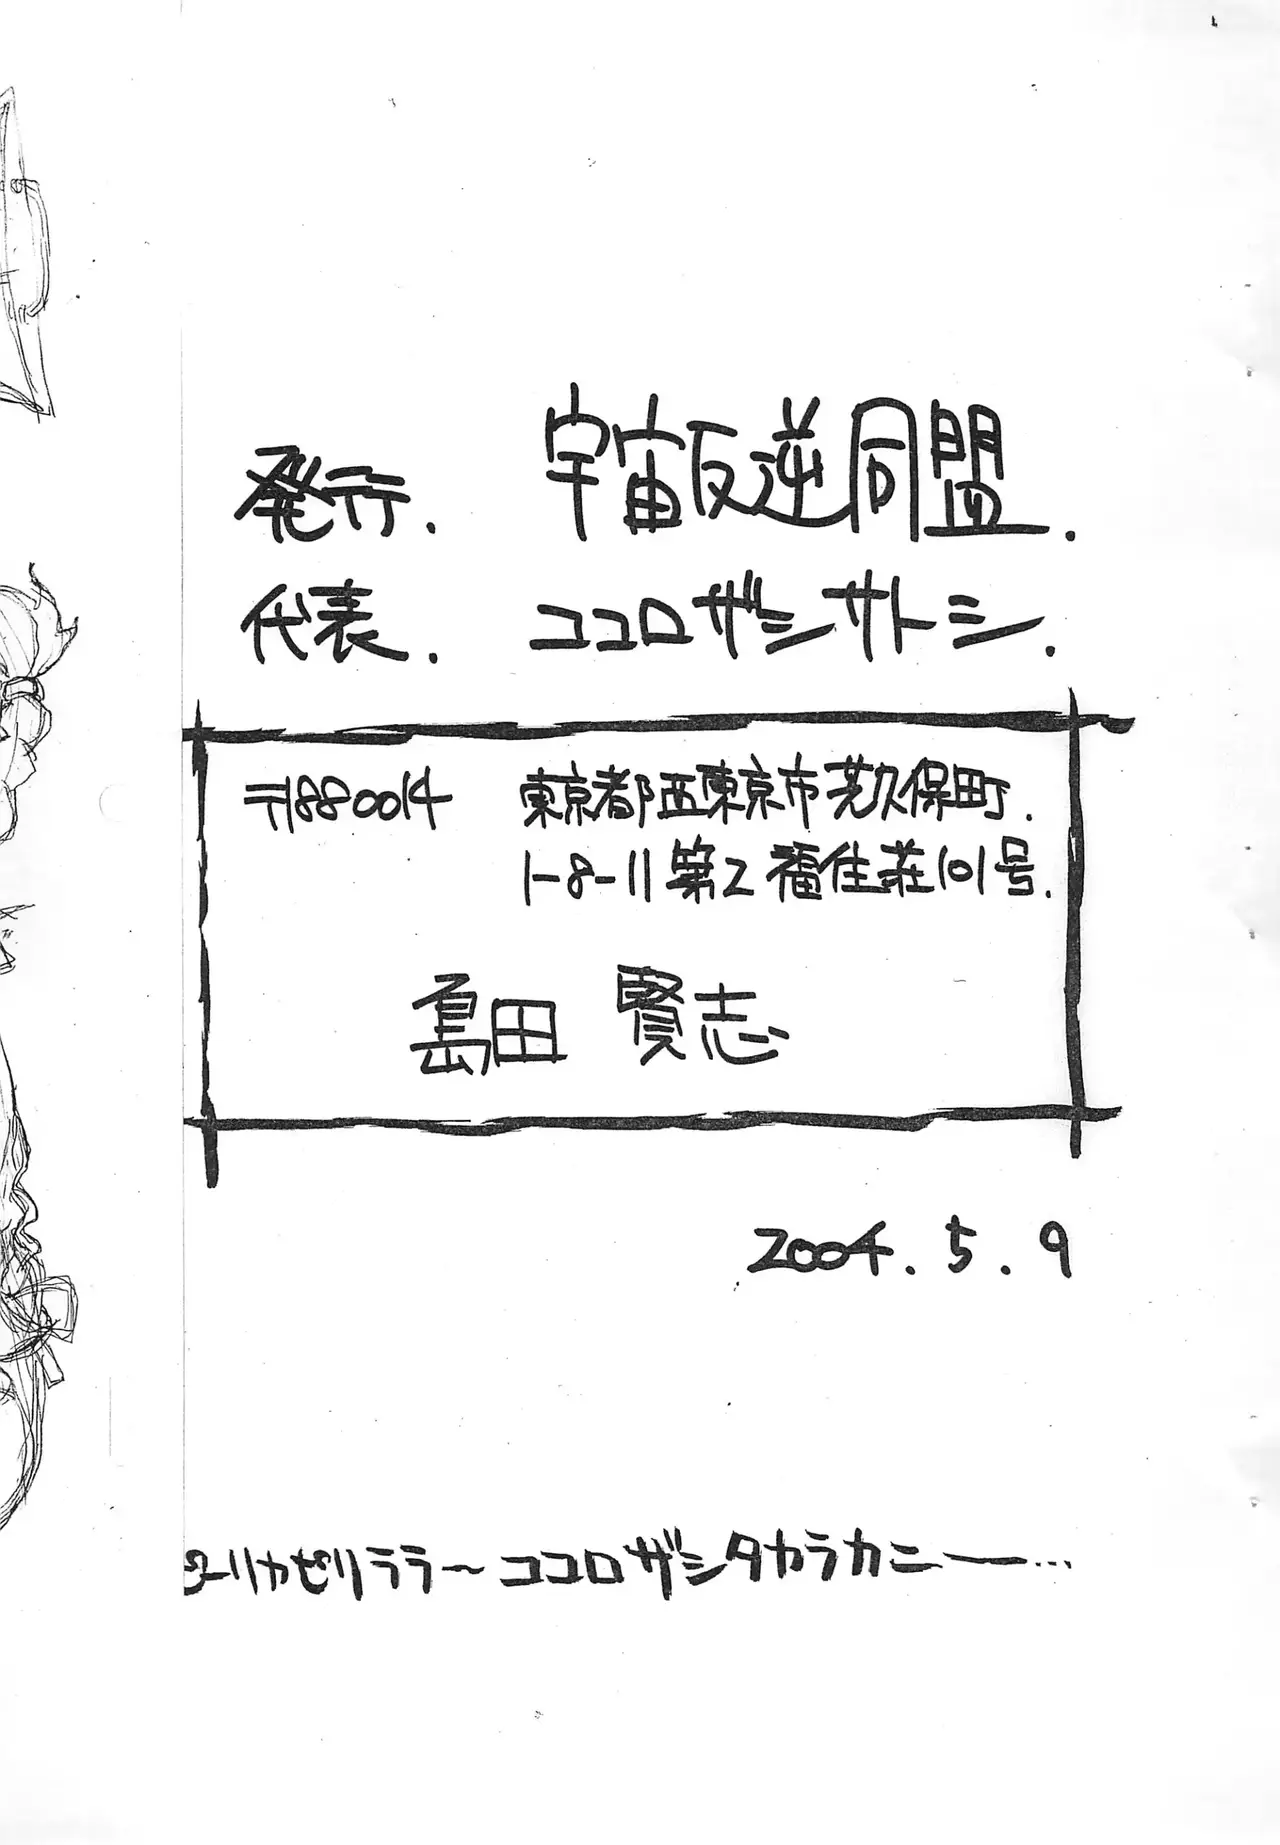 発行. 宇宙反逆同盟.
代表. ココロザシサトシ.
〒1880014 東京都西東京市芝久保町.
1-8-11 第2 福住荘101号.
島田 賢志
2004.5.9
ピリカピリララ〜 ココロザシタカラカニー…